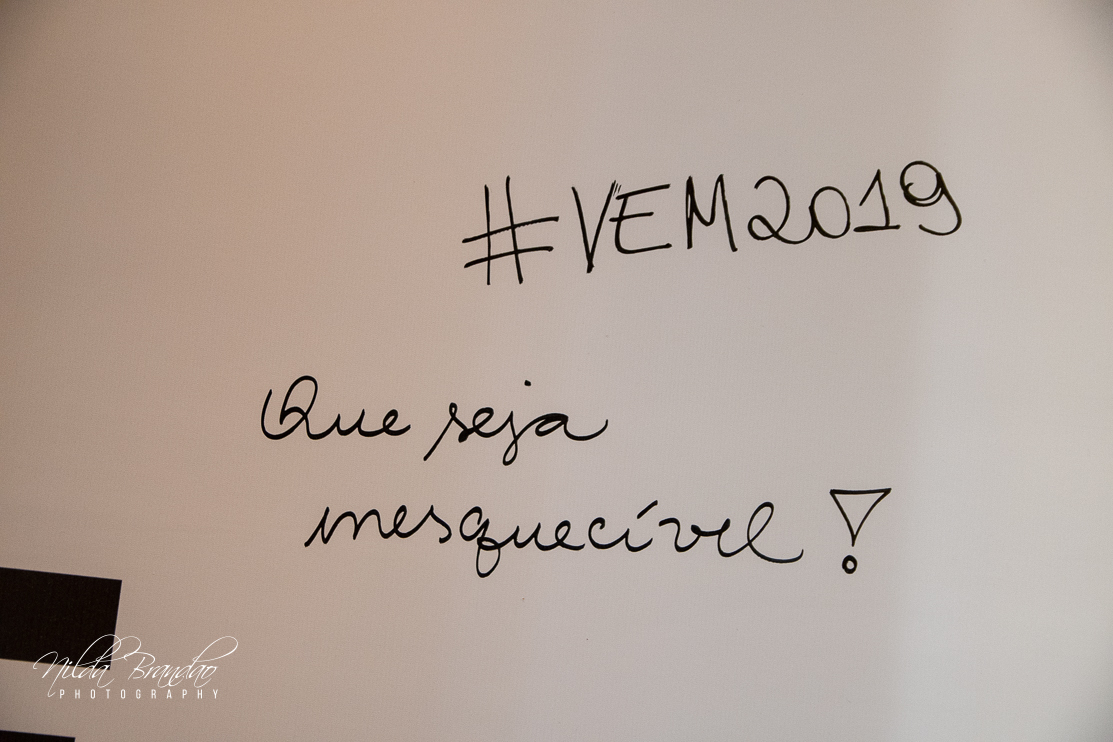 #VEM2019
Que seja
inesquecível!
Nilda Brandao
PHOTOGRAPHY